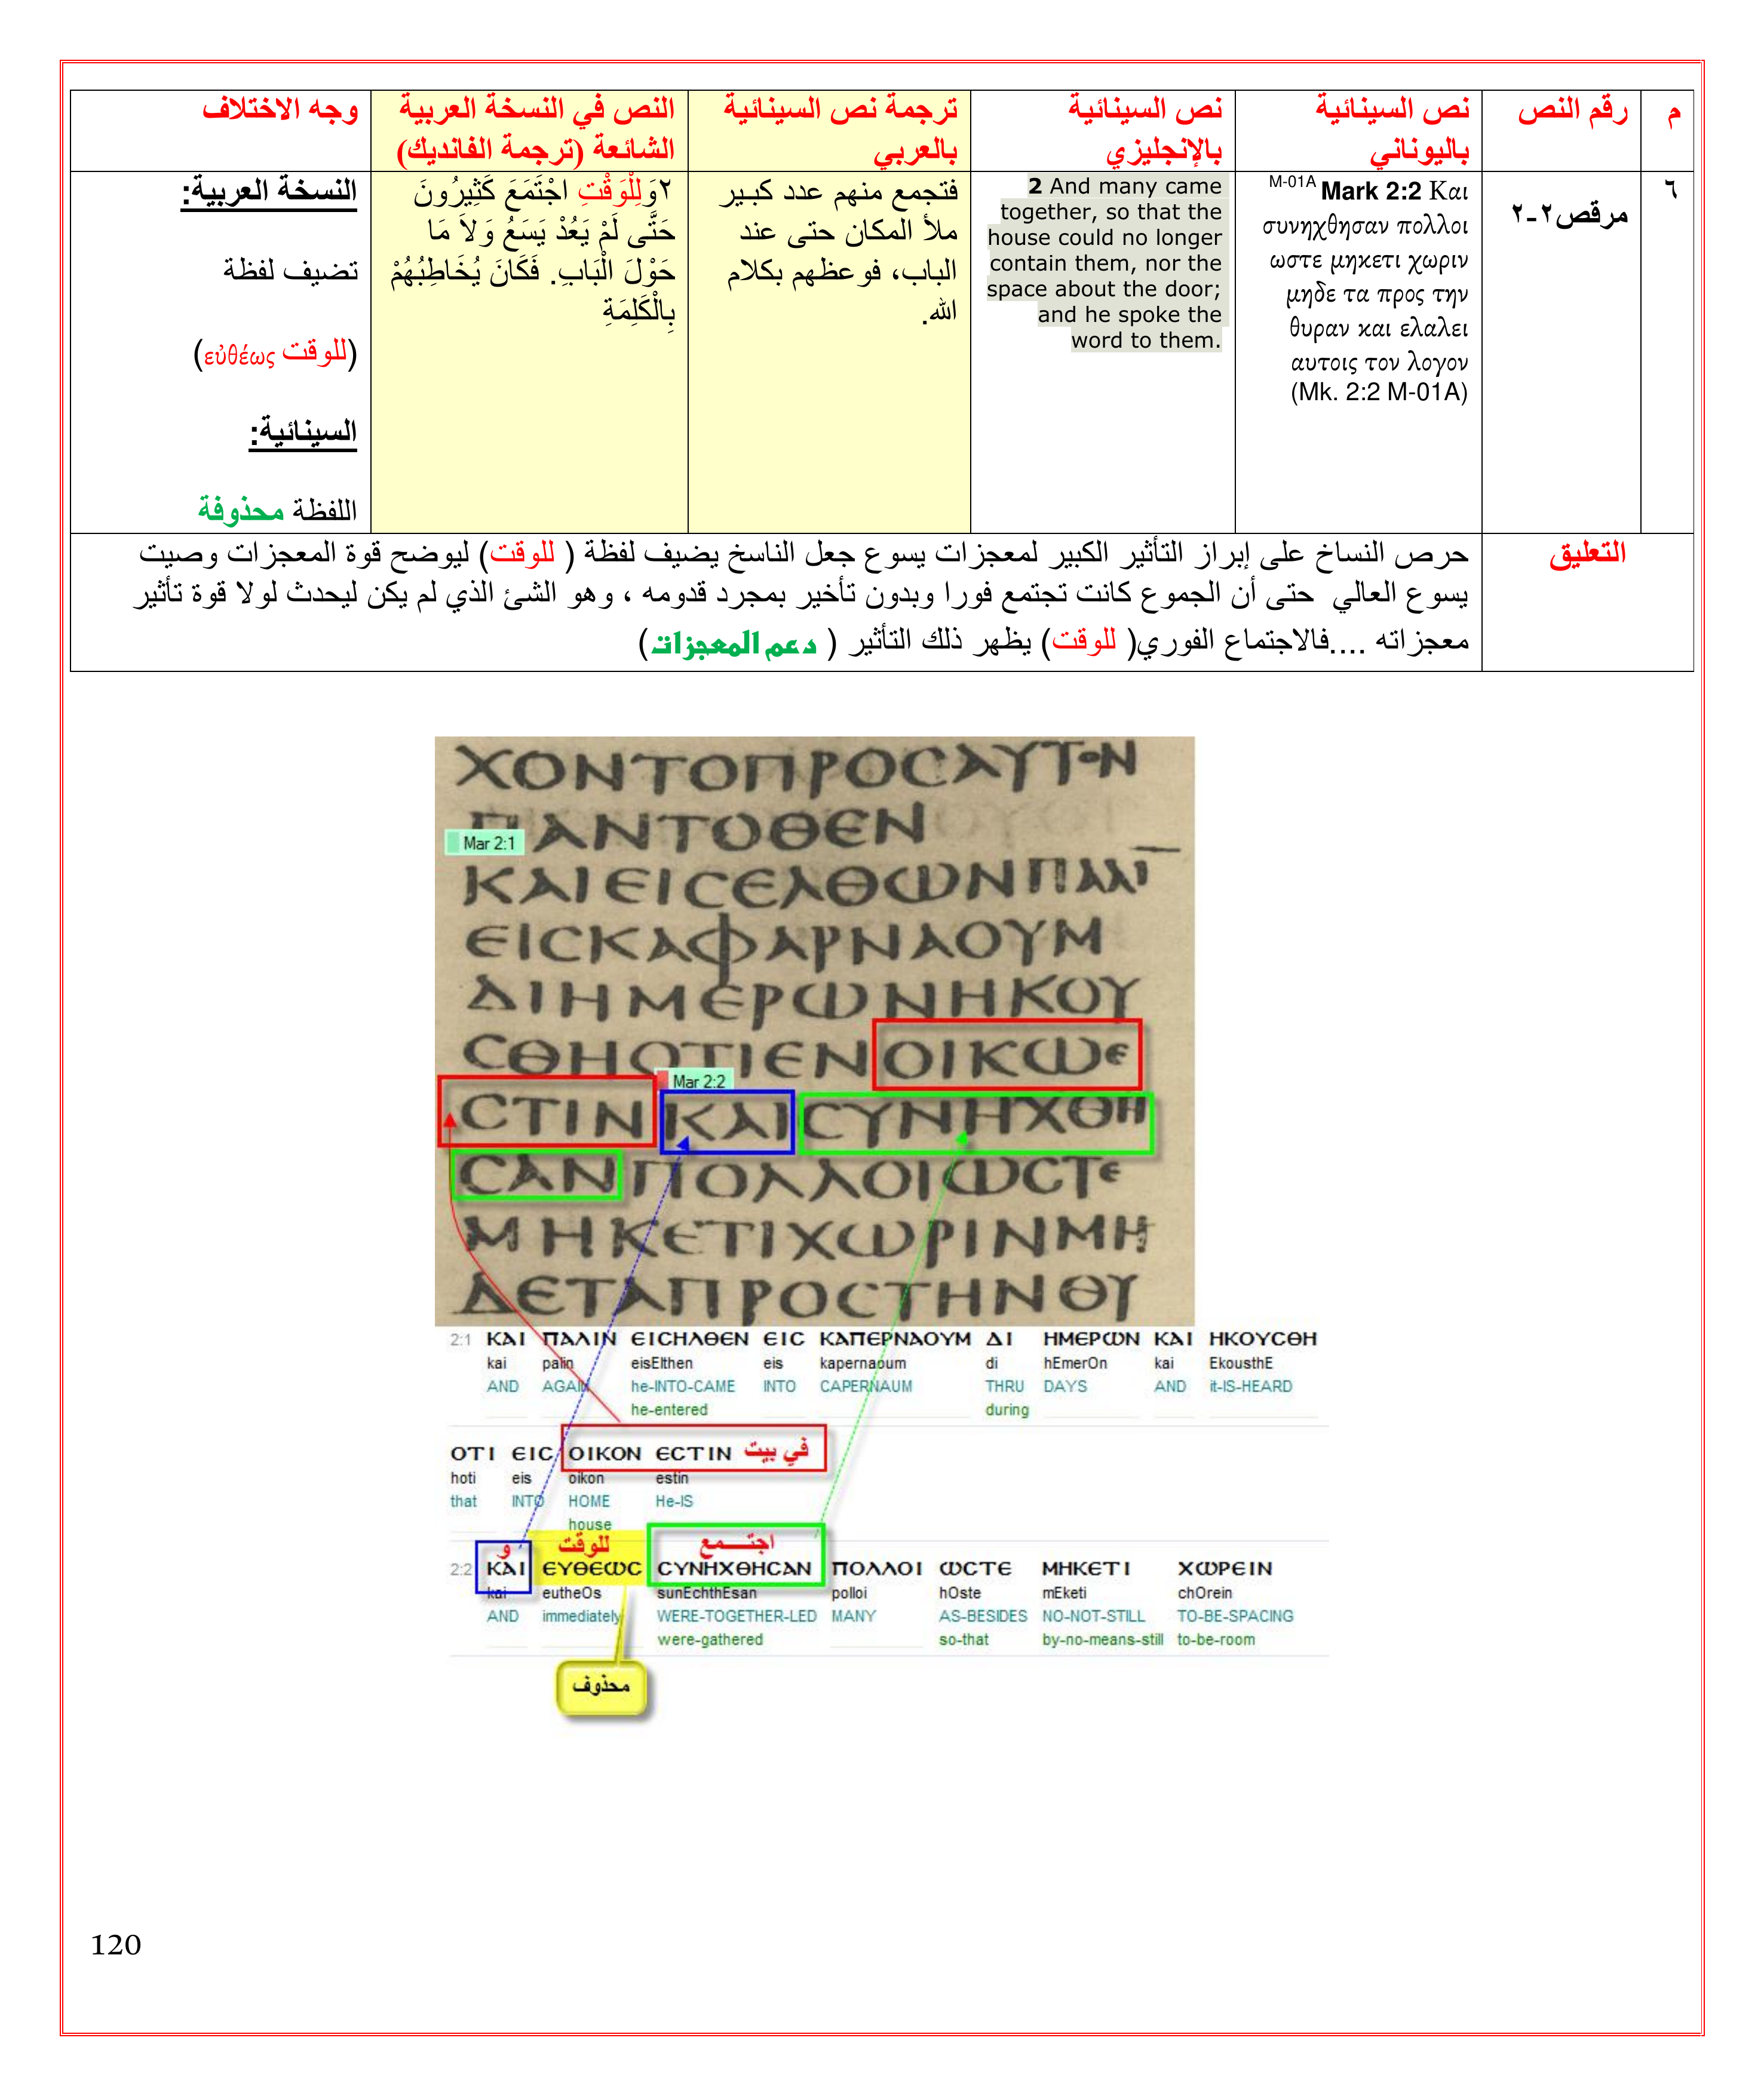 م
رقم النص
نص السينائية
باليوناني
نص السينائية
بالإنجليزي
ترجمة نص السينائية
بالعربي
النص في النسخة العربية
الشائعة (ترجمة الفانديك)
وجه الاختلاف
٦
مرقص٢-٢
M-01A Mark 2:2 Και
συνηχθησαν πολλοι
ωστε μηκετι χωριν
μηδε τα προς την
θυραν και ελαλει
αυτοις τον λογον
(Mk. 2:2 M-01A)
2 And many came
together, so that the
house could no longer
contain them, nor the
space about the door;
and he spoke the
word to them.
فتجمع منهم عدد كبير
ملأ المكان حتى عند
الباب، فوعظهم بكلام
الله.
٢وَلِلْوَقْتِ اجْتَمَعَ كَثِيرُونَ
حَتَّى لَمْ يَعُدْ يَسَعُ وَلاَ مَا
حَوْلَ الْبَابِ. فَكَانَ يُخَاطِبُهُمْ
بِالْكَلِمَةِ
النسخة العربية:
تضيف لفظة
(للوقت εὐθέως)
السينائية:
اللفظة محذوفة
التعليق
حرص النساخ على إبراز التأثير الكبير لمعجزات يسوع جعل الناسخ يضيف لفظة ( للوقت) ليوضح قوة المعجزات وصيت
يسوع العالي حتى أن الجموع كانت تجتمع فورا وبدون تأخير بمجرد قدومه ، وهو الشئ الذي لم يكن ليحدث لولا قوة تأثير
معجزاته ....فالاجتماع الفوري( للوقت) يظهر ذلك التأثير ( دعم المعجزات)
ΧΟΝΤΟΠΡΟCΑΥΤΟΝ
ΠΑΝΤΟΘΕΝ
Mar 2:1
ΚΑΙΕΙCΕΛΘΩΝΠΑΛΙ
ΕΙCΚΑΦΑΡΝΑΟΥΜ
ΔΙΗΜΕΡΩΝΗΚΟΥ
CΘΗΟΤΙΕΝΟΙΚΩΕ
Mar 2:2
CΤΙΝΚΑΙCΥΝΗΧΘΗ
CΑΝΠΟΛΛΟΙΩCΤΕ
ΜΗΚΕΤΙΧΩΡΙΝΜΗ
ΔΕΤΑΠΡΟCΤΗΝΘΥ
2:1 ΚΑΙ ΠΑΛΙΝ ΕΙCΗΛΘΕΝ ΕΙC ΚΑΠΕΡΝΑΟΥΜ ΔΙ ΗΜΕΡΩΝ ΚΑΙ ΗΚΟΥCΘΗ
kai palin eisElthen eis kapernaoum di hEmerOn kai EkousthE
AND AGAIN he-INTO-CAME INTO CAPERNAUM THRU DAYS AND it-IS-HEARD
he-entered during
ΟΤΙ ΕΙC ΟΙΚΟΝ ΕCΤΙΝ في بيت
hoti eis oikon estin
that INTO HOME He-IS
house
و للوقت اجتمع
2:2 ΚΑΙ ΕΥΘΕΩC CΥΝΗΧΘΗCΑΝ ΠΟΛΛΟΙ ΩCΤΕ ΜΗΚΕΤΙ ΧΩΡΕΙΝ
kai eutheOs sunEchthEsan polloi hOste mEketi chOrein
AND immediately WERE-TOGETHER-LED MANY AS-BESIDES NO-NOT-STILL TO-BE-SPACING
were-gathered so-that by-no-means-still to-be-room
محذوف
120